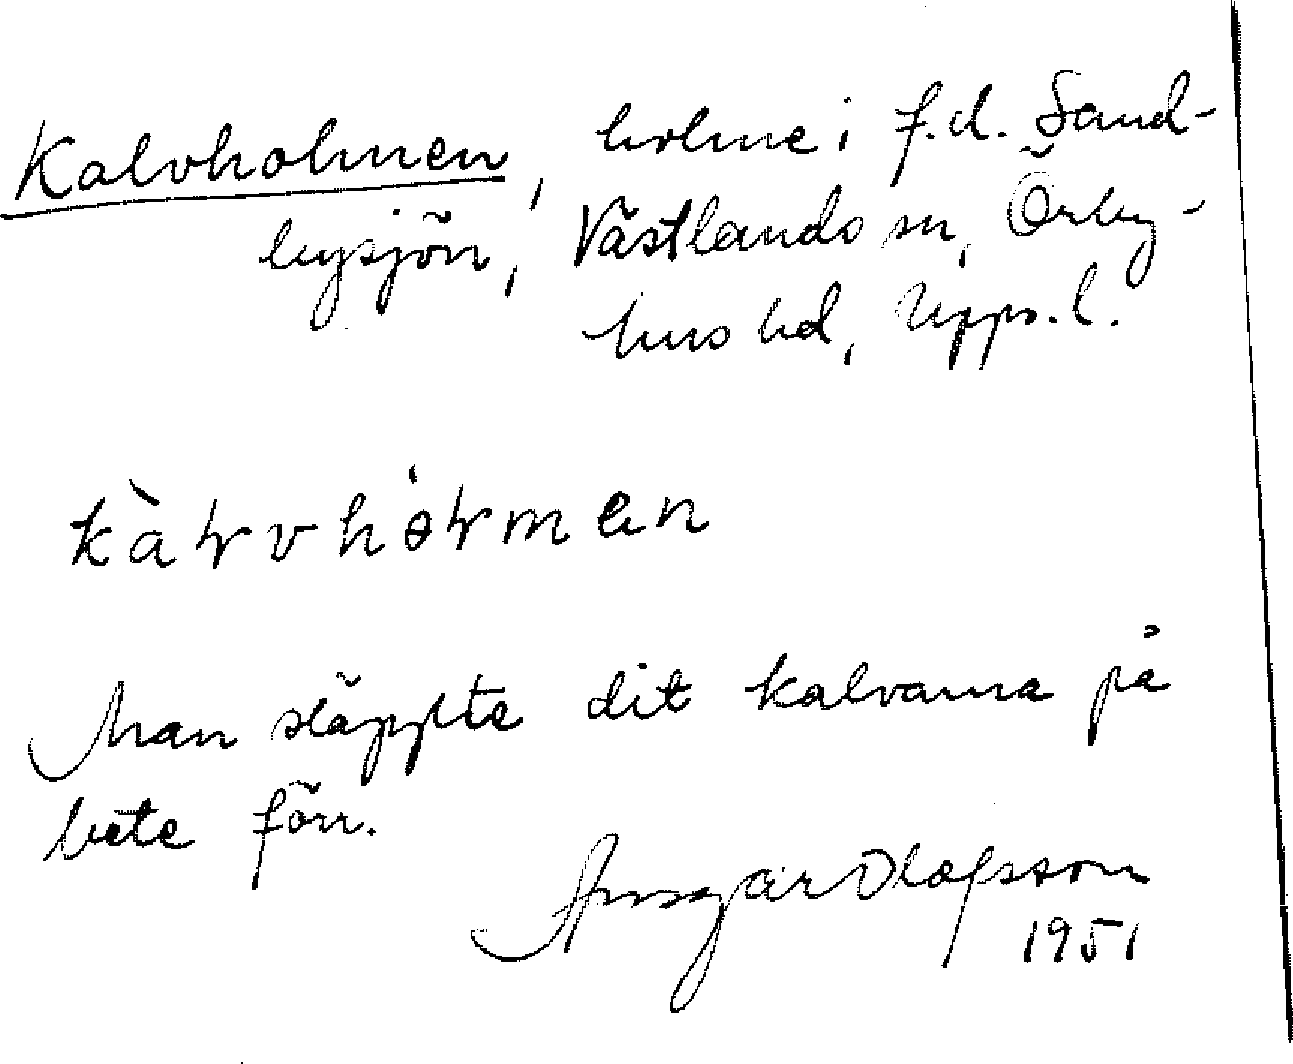 Kalvholmen, holme i f.d. Sand-
bysjön, Västlands sn, Örby-
hus hd, Upps. l.
kàɽvhòɽmen
Man släppte dit kalvarna på
bete förr.
Ansgar Olofsson
1951